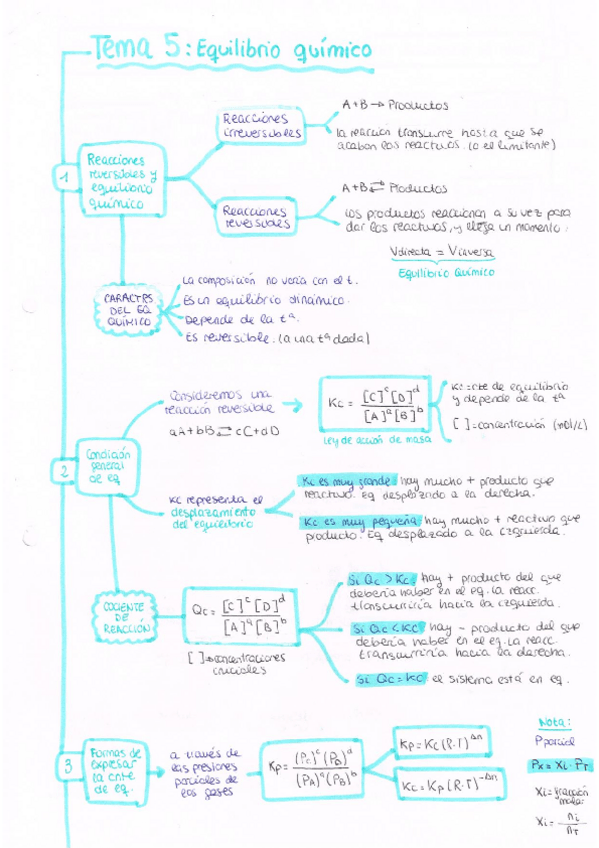 Tema 5: Equilibrio químico
1
Reacciones
reversibles y
equilibrio
químico
Reacciones
irreversibles
A + B → Productos
la reacción transcurre hasta que se
acaban los reactivos. (o el limitante)
Reacciones
reversibles
A + B ⇄ Productos
los productos reaccionan a su vez para
dar los reactivos, y llega un momento:
Vdirecta = Vinversa
Equilibrio Químico
CARACTRS
DEL EQ
QUÍMICO
La composición no varía con el t.
Es un equilibrio dinámico.
Depende de la tª.
Es reversible. (a una tª dada)
2
Condición
general
de eq
Consideremos una
reacción reversible
aA + bB ⇄ cC + dD
Kc = [C]^c [D]^d / [A]^a [B]^b
Ley de acción de masa
Kc = cte de equilibrio
y depende de la tª
[ ] = concentración (mol/L)
Kc representa el
desplazamiento
del equilibrio
Kc es muy grande: hay mucho + producto que
reactivo. Eq desplazado a la derecha.
Kc es muy pequeña: hay mucho + reactivo que
producto. Eq desplazado a la izquierda.
COCIENTE
DE
REACCIÓN
Qc = [C]^c [D]^d / [A]^a [B]^b
[ ] → concentraciones
Si Qc > Kc: hay + producto del que
debería haber en el eq. La reacc.
transcurriría hacia la izquierda.
Si Qc < Kc: hay - producto del que
debería haber en el eq. La reacc.
transcurriría hacia la derecha.
Si Qc = Kc: el sistema está en eq.
3
Formas de
expresar
la cnte
de eq.
a través de
las presiones
parciales de
los gases
Kp = (Pc)^c (PD)^d / (PA)^a (PB)^b
Kp = Kc (R·T)^Δn
Kc = Kp (R·T)^-Δn
Nota:
P parcial
Px = Xi · PT
Xi = fracción
molar
Xi = ni / nT